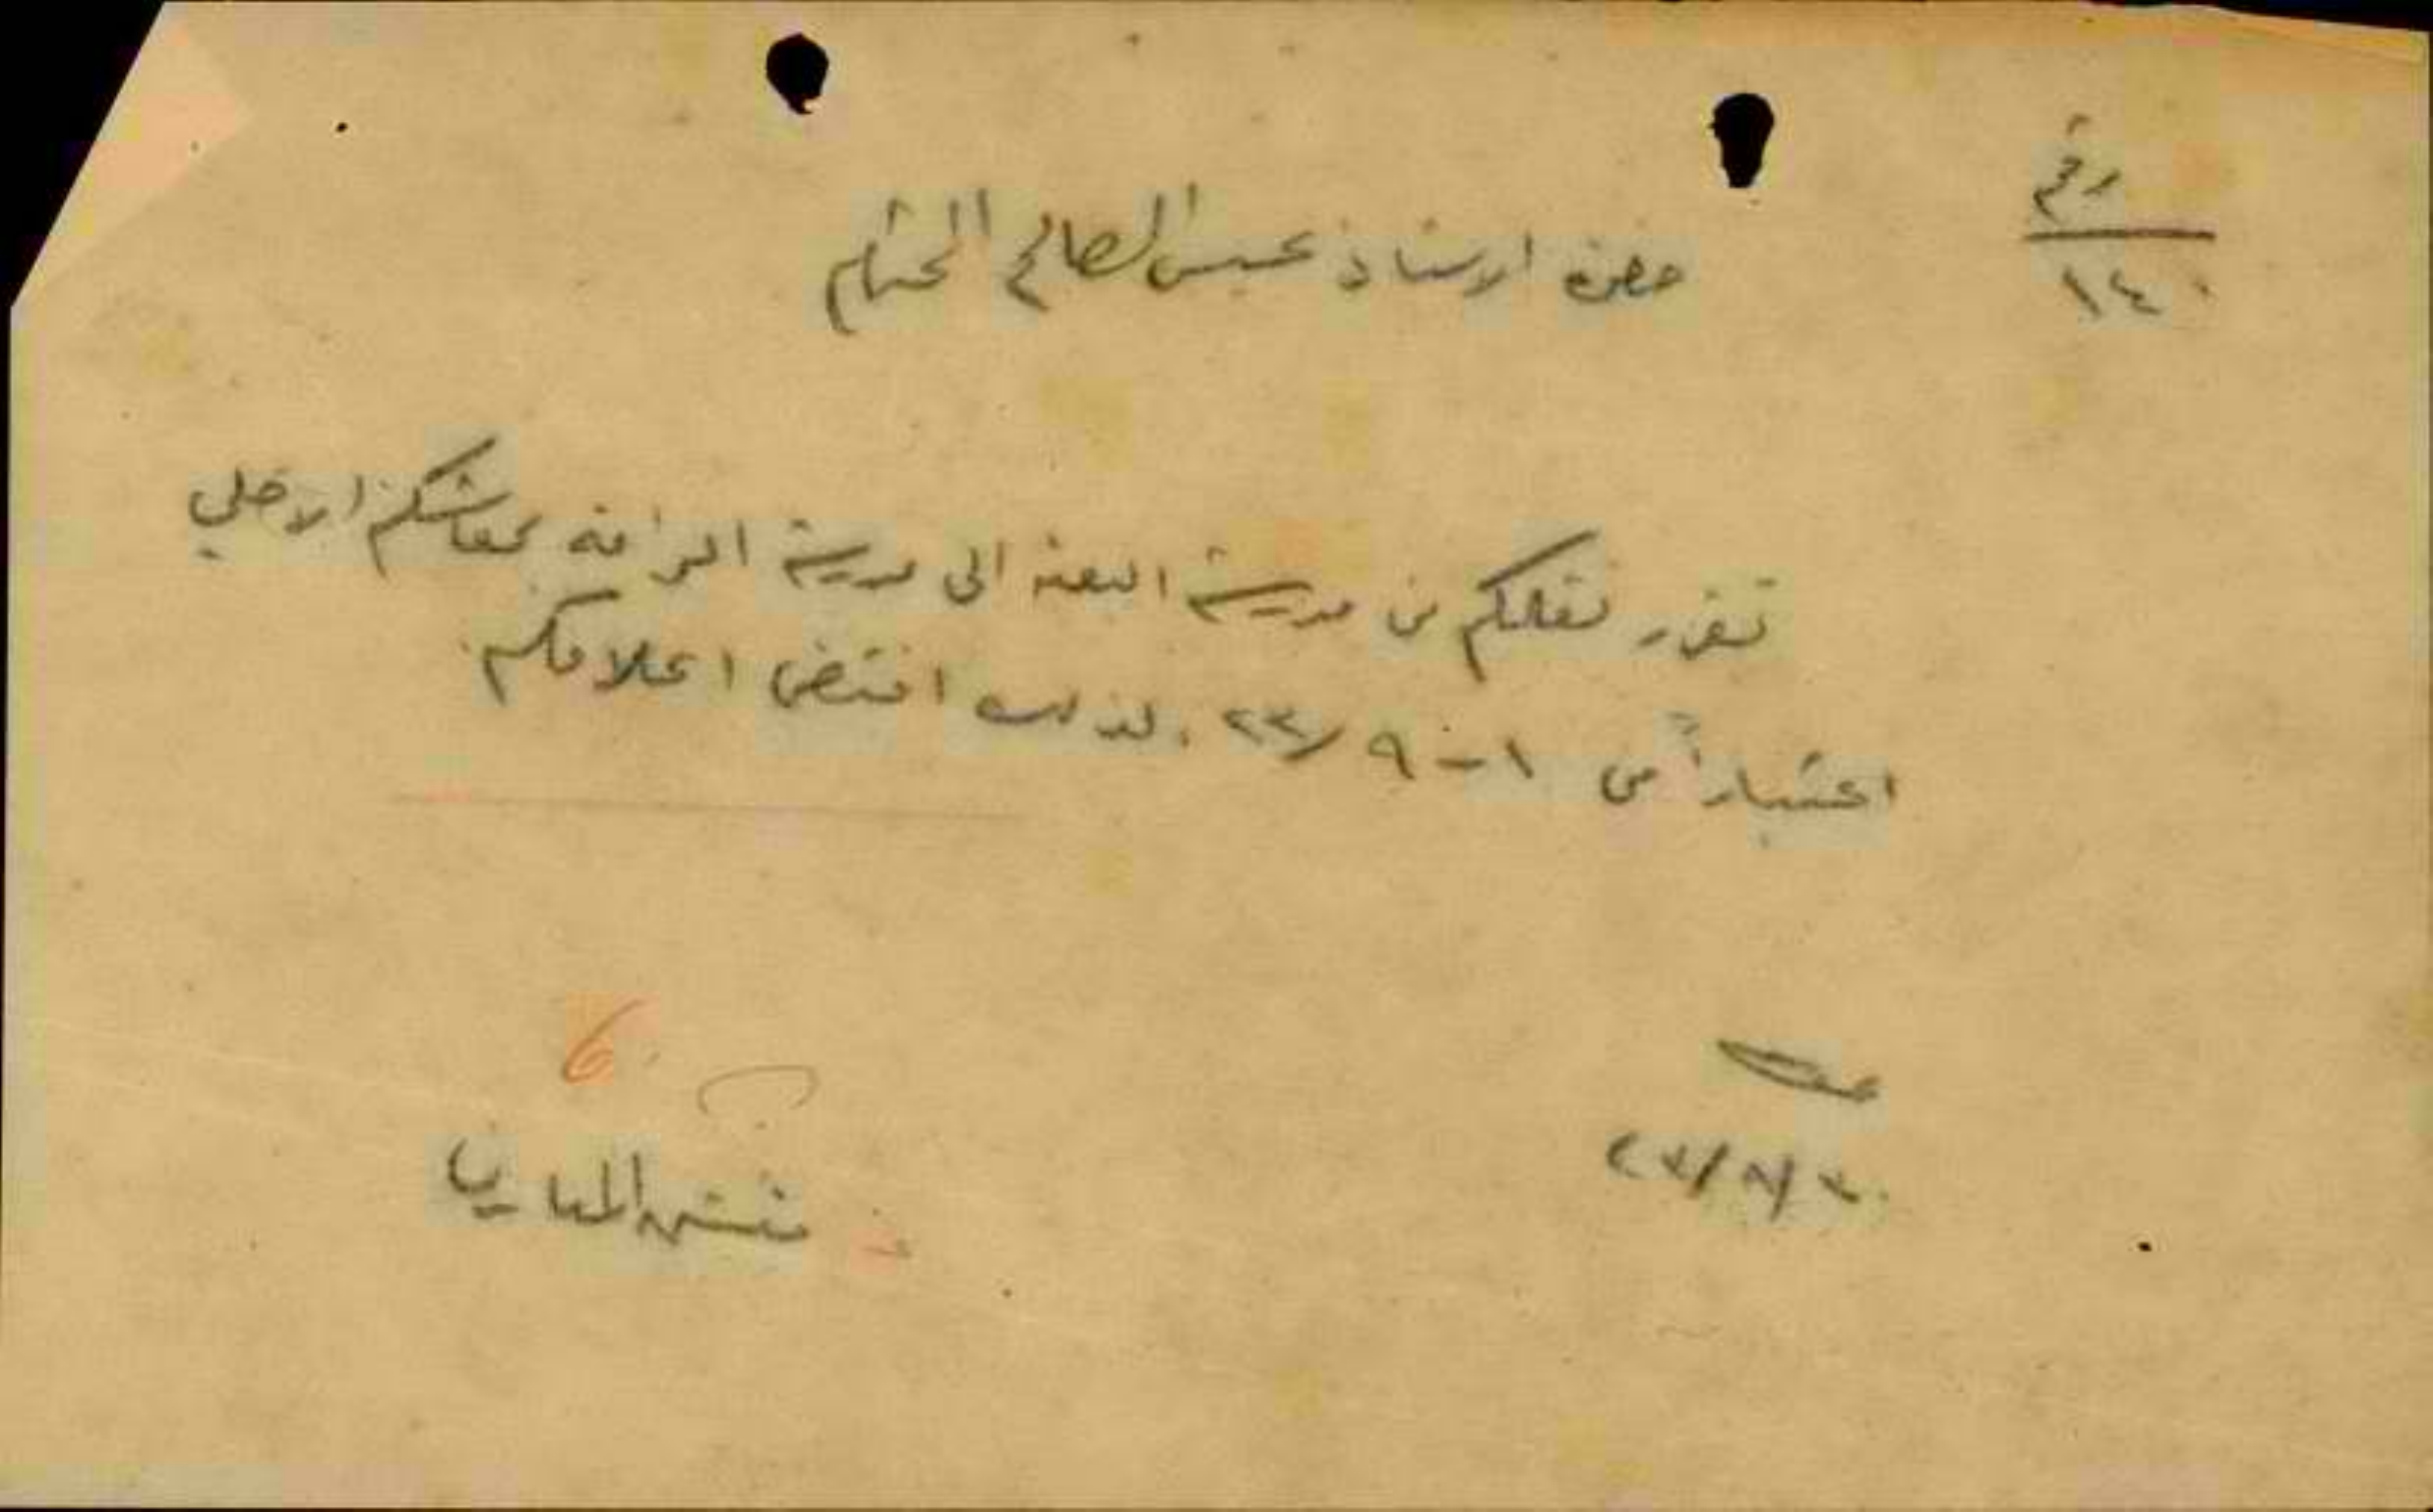 رقم
١٤٠
حضرة الاستاذ عيسى الصالح المحترم
تقرر نقلكم من مدرسة البعنه الى مدرسة الرامه بمعاشكم الاصلي
اعتباراً من ١-٩/٢٣. لذلك اقتضى اعلامكم.
عكا
٣٠/٨/٢٣
مفتش المعارف
6